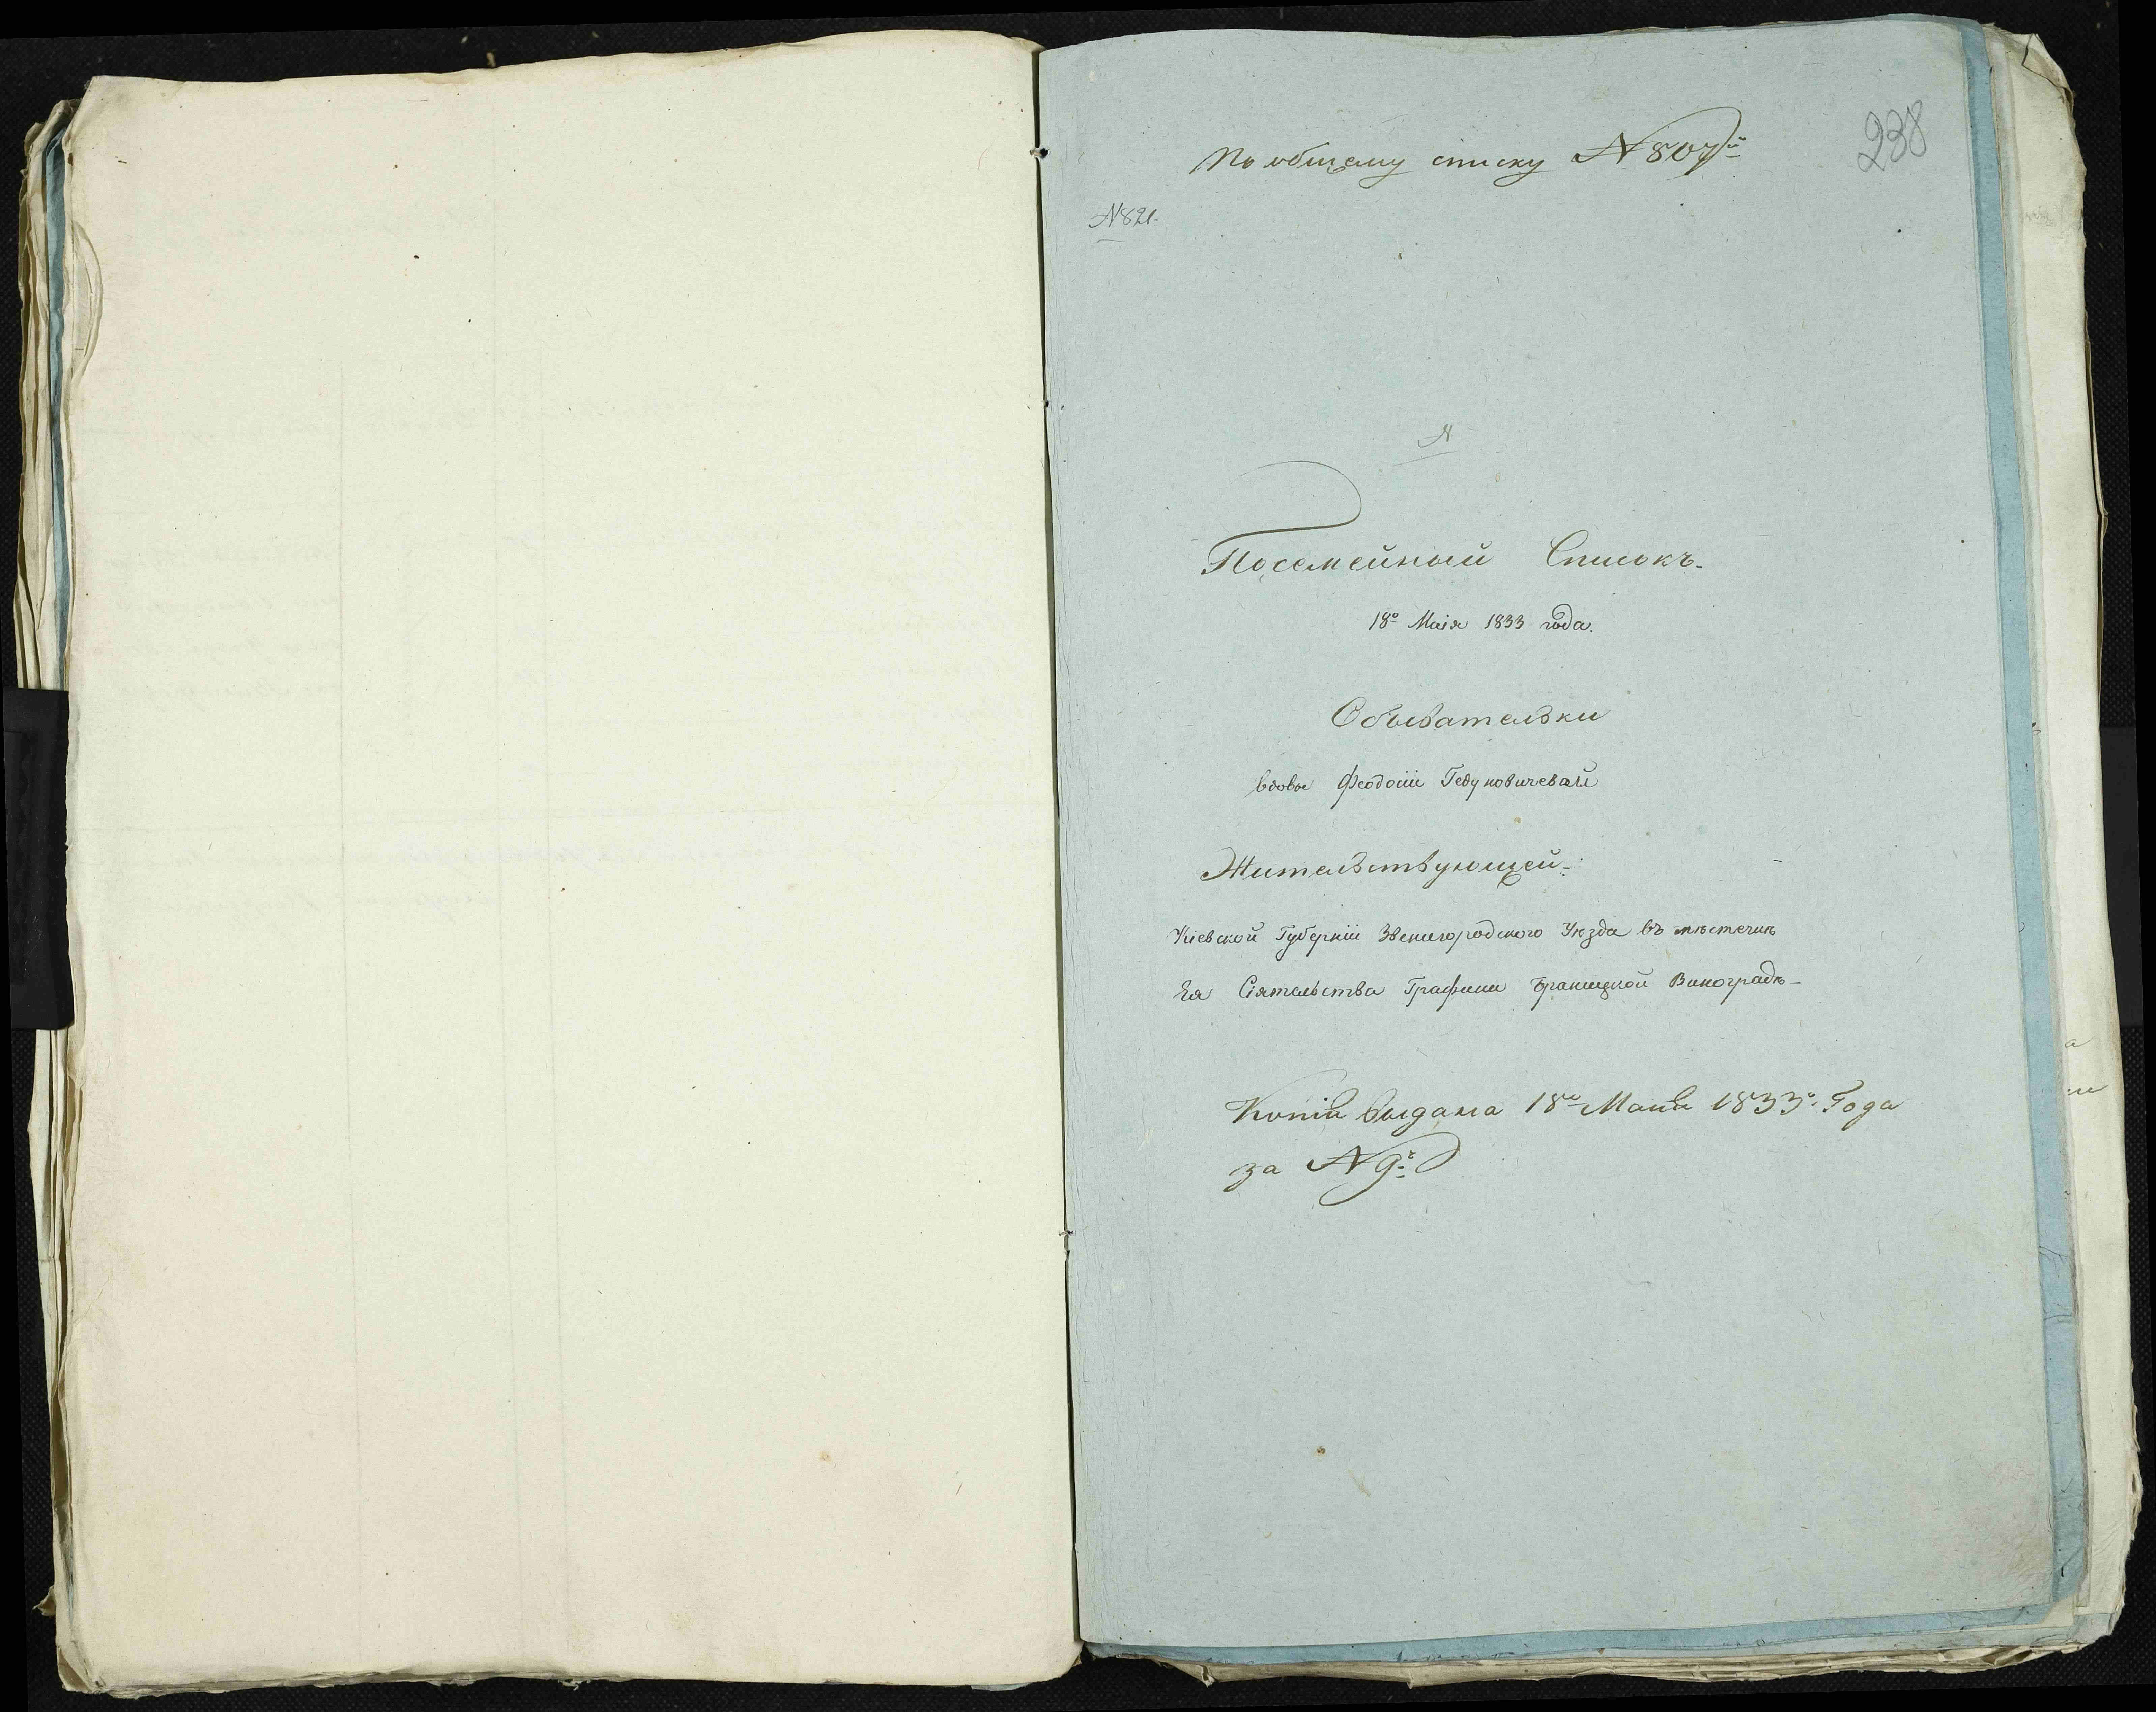 По общему списку N 807й
238
N 821.
N
Посемейный Списокъ.
18го Маія 1833 года.
Обывательки
вдовы Феодосіи Гедуновичевай
Жительствующей:
Кіевской Губерніи Звенигородского Уѣзда въ мѣстечкѣ
Ея Сіятельства Графини Браницкой Виноградѣ
Копія выдана 18го Маия 1833го Года
за N 9м